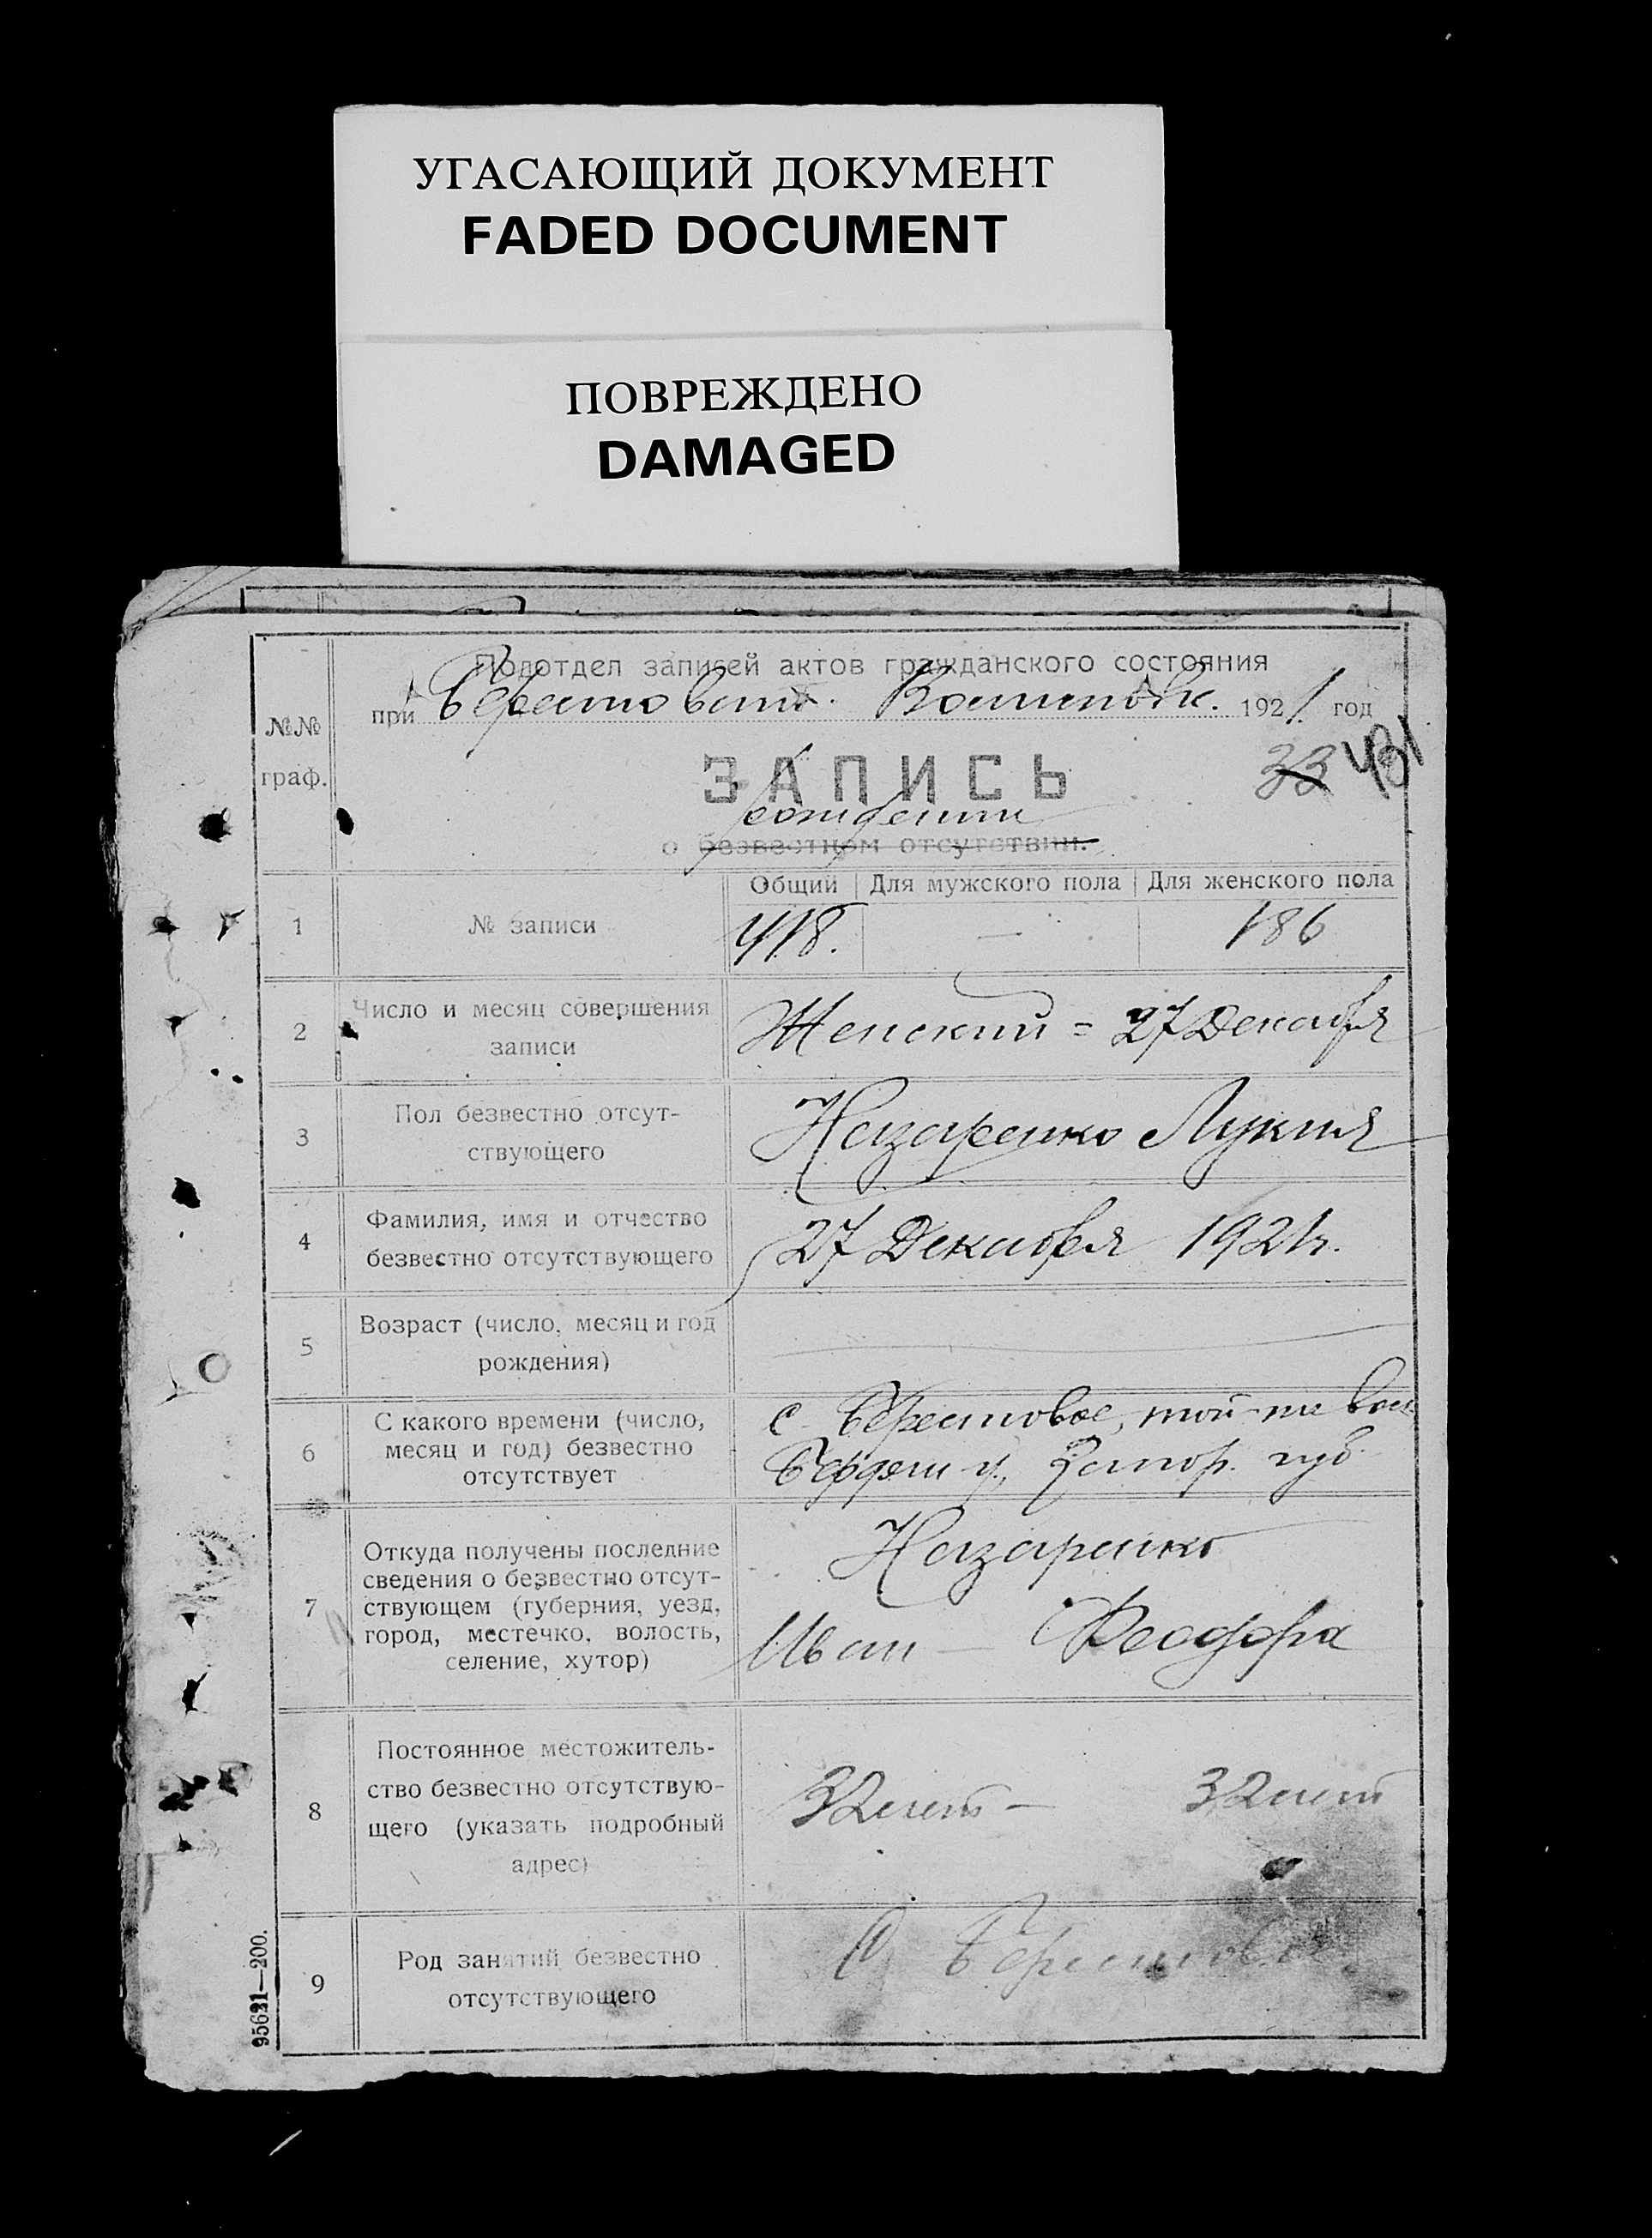 УГАСАЮЩИЙ ДОКУМЕНТ
FADED DOCUMENT
ПОВРЕЖДЕНО
DAMAGED
Подотдел записей актов гражданского состояния
при Берестовском. 1921 год
№№
граф.
33 431
ЗАПИСЬ
рождении
о безвестном отсутствии.
Общий Для мужского пола Для женского пола
1 № записи 418. — 186
2 Число и месяц совершения
записи
Женский = 27 Декабря
3 Пол безвестно отсут-
ствующего
Назаренко Лукия
4 Фамилия, имя и отчество
безвестно отсутствующего
27 Декабря 1921 г.
5 Возраст (число, месяц и год
рождения)
6 С какого времени (число,
месяц и год) безвестно
отсутствует
с. Берестовое, той-же вол
Бердян у., Запор. губ.
7 Откуда получены последние
сведения о безвестно отсут-
ствующем (губерния, уезд,
город, местечко, волость,
селение, хутор)
Назаренко
Иван — Феодора
8 Постоянное местожитель-
ство безвестно отсутствую-
щего (указать подробный
адрес)
32 лет — 32 лет
9 Род занятий безвестно
отсутствующего
с. Берестовое.
95631—200.